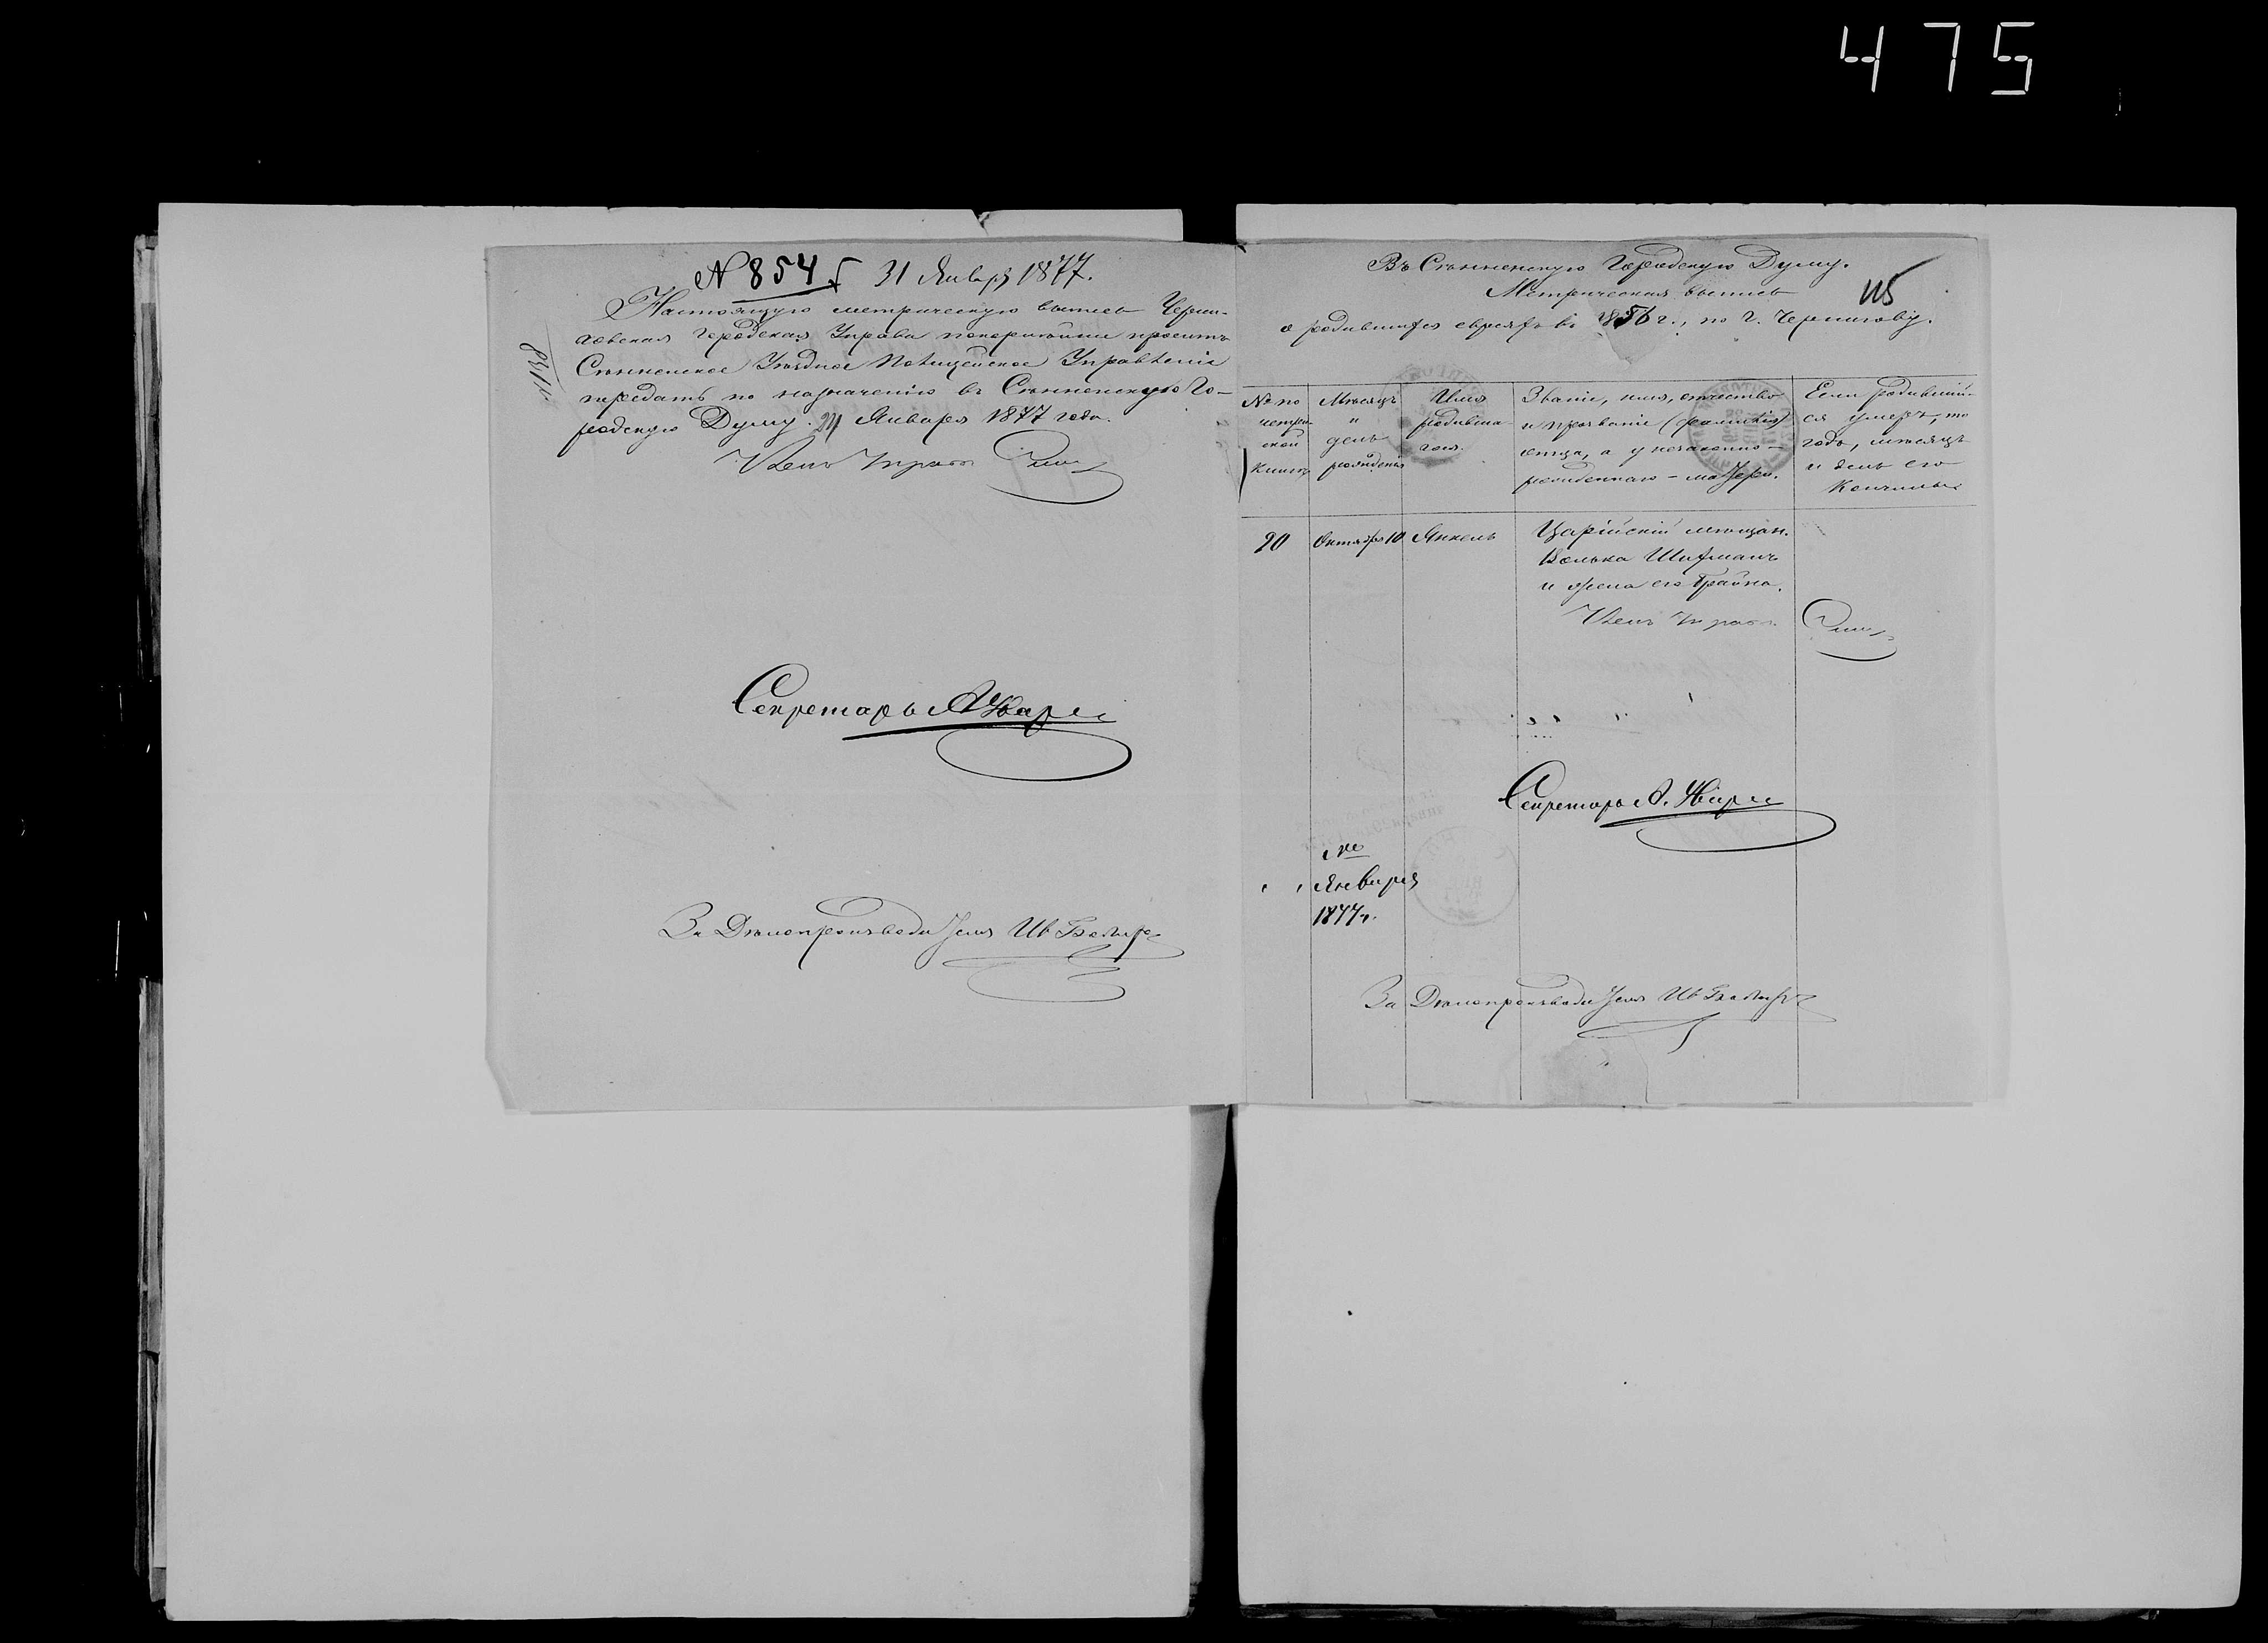 475
№ 854 31 Января 1877.
Настоящую метрическую выпись Черни-
говская Городская Управа покорнейше проситъ
Сѣнненское Уѣздное Полицейское Управленіе
передать по назначенію въ Сѣнненскую Го-
родскую Думу. 24 Января 1877 года.
Членъ Управы
Секретарь А.
За Дѣлопроизводителя Ив
Въ Сѣнненскую Городскую Думу.
Метрическая выпись
115
о родившихся евреяхъ въ 1856 г., по г. Чернигову.
№ по метри- ской книгѣ
Мѣсяцъ и день рожденія
Имя родивша- гося.
Званіе, имя, отчество и прозваніе (фамилія) отца, а у незаконно- рожденнаго - матери.
Если родившій- ся умеръ, то годъ, мѣсяцъ и день его кончины
20 Октября 10 Янкель
мѣщан.
Шифманъ
и жена его
Членъ Управы
Секретарь А.
№
Января
1877 г.
За Дѣлопроизводителя Ив